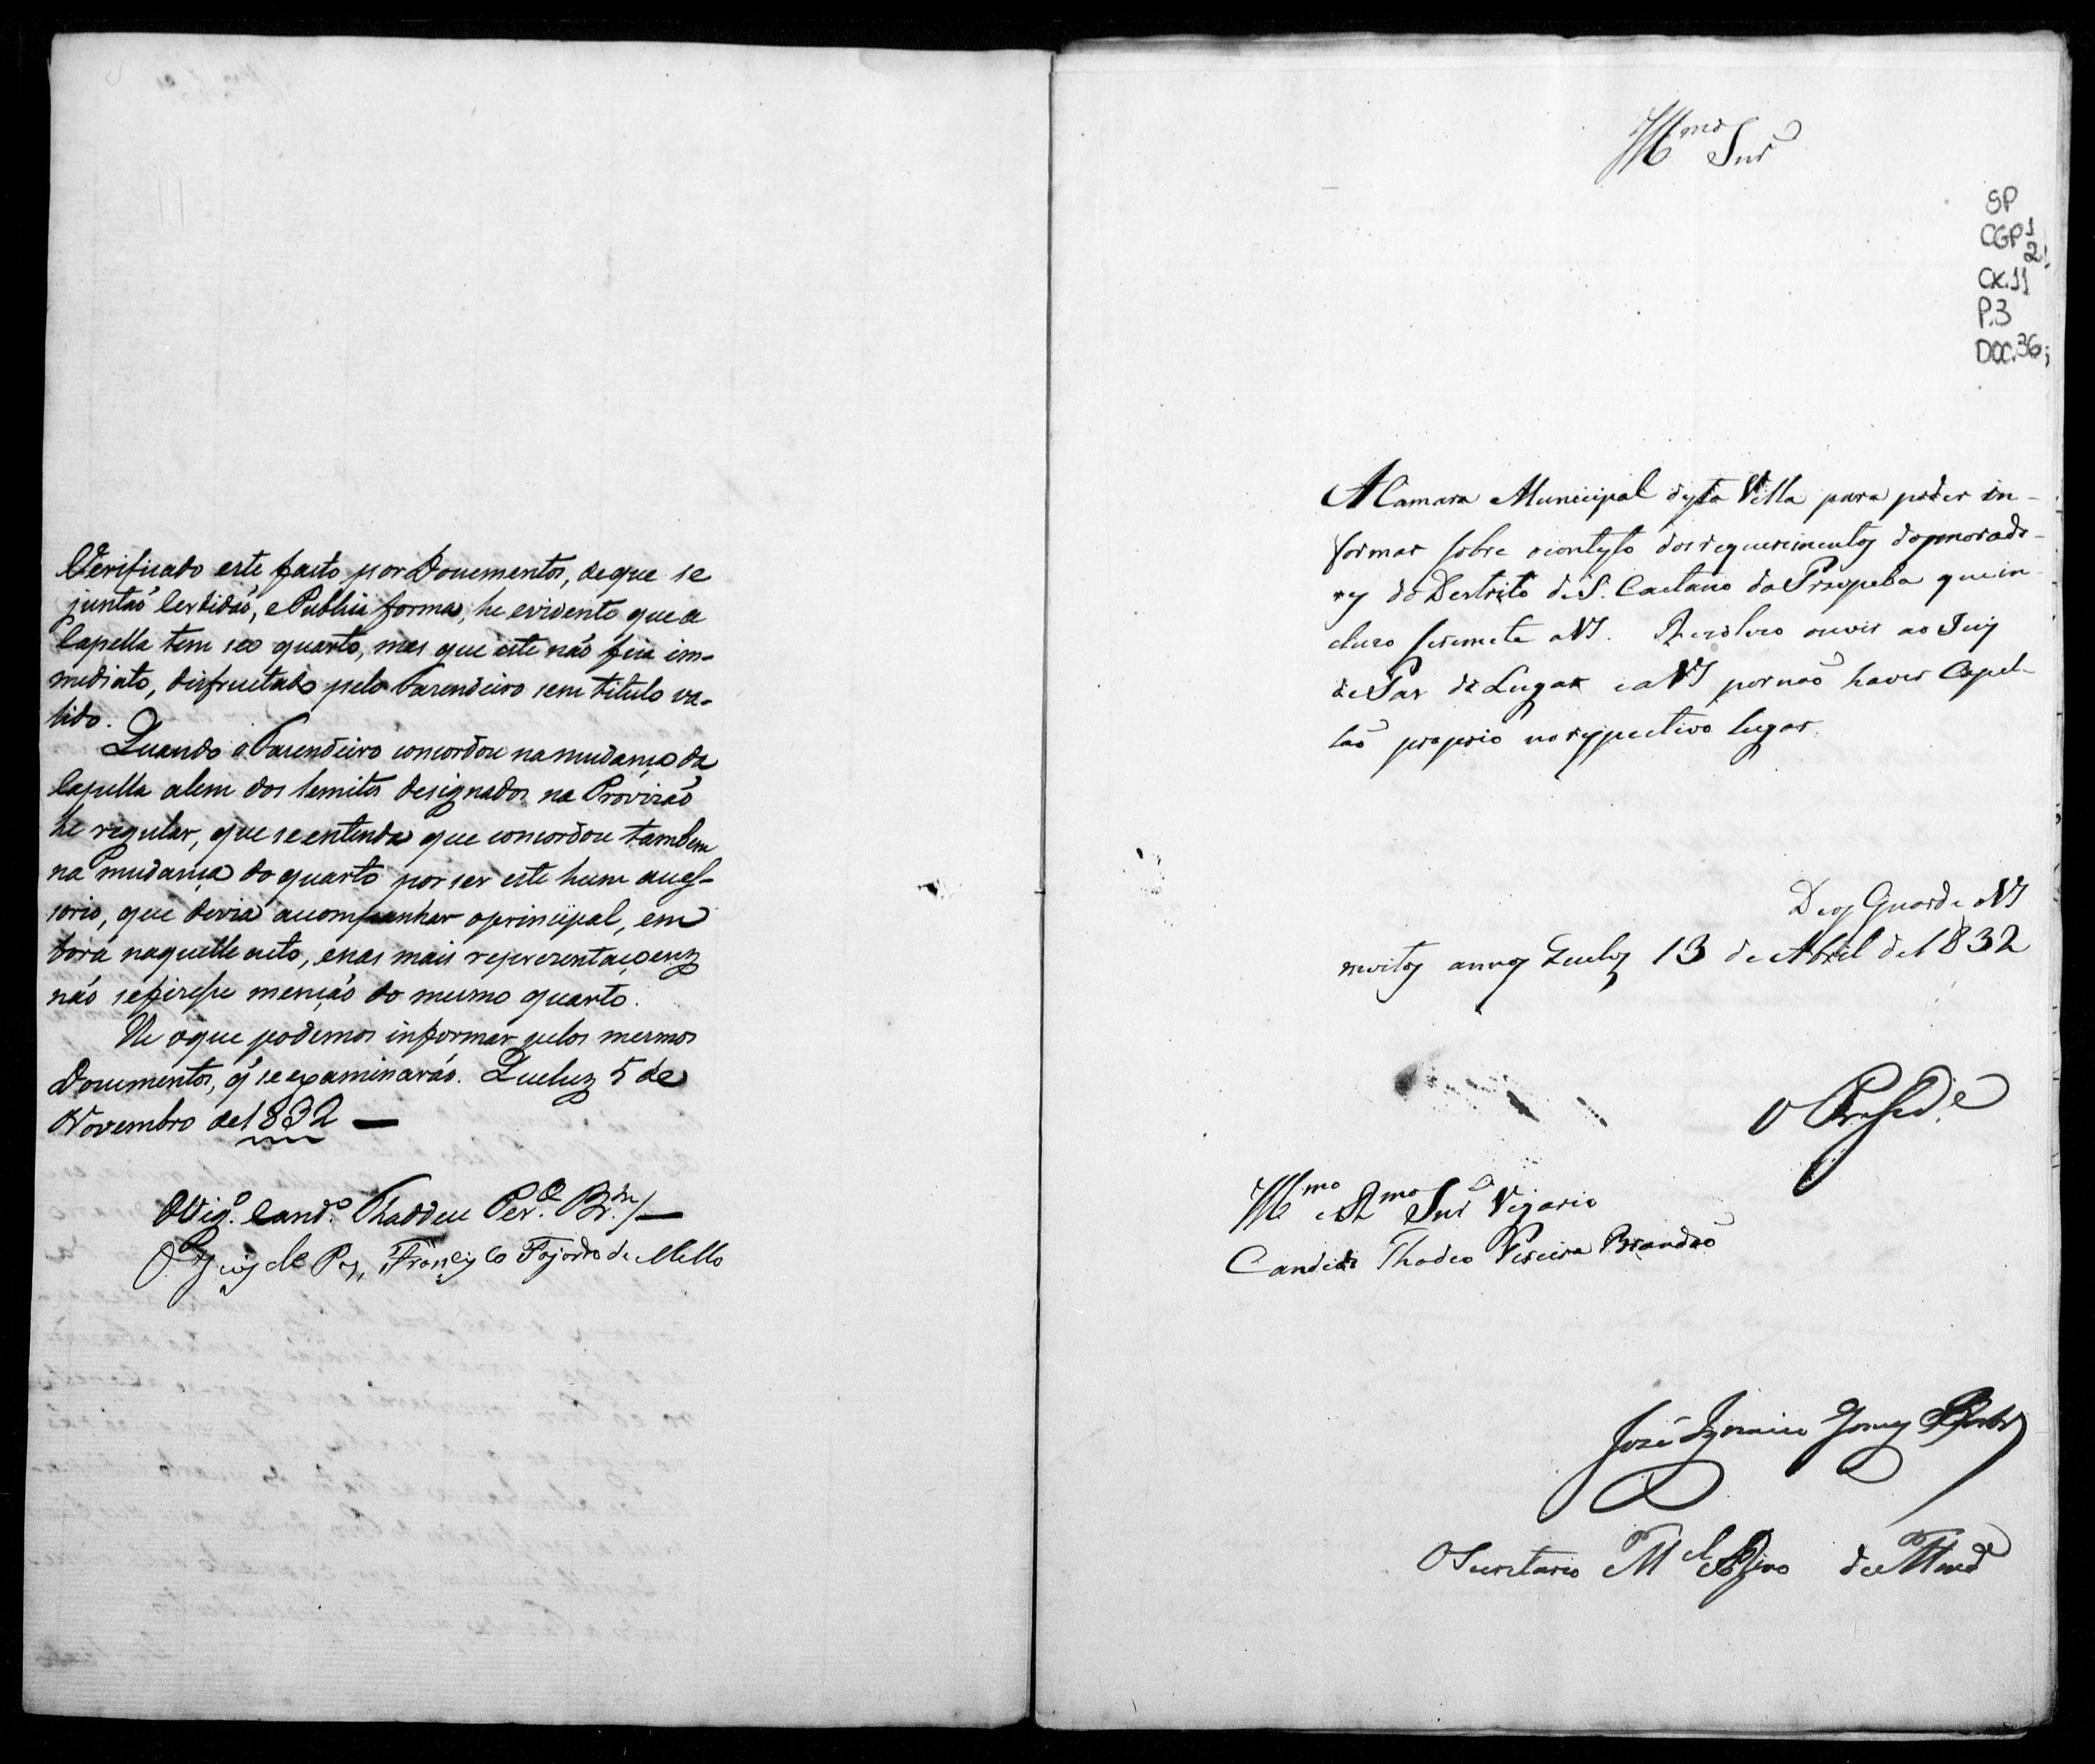 Verificado este facto por Documentos, de que se
juntaõ Certidaõ, e Publica forma, he evidente que a
Capella tem seo quarto, mas que este não fica im-
mediato, disfructado pelo Fazendeiro sem titulo va-
lido.
Quando o Fazendeiro concordou na mudança da
Capella alem dos lemites designados na Provizaõ
he regular, que se entenda que concordou tambem
na mudança do quarto por ser este hum aces-
sorio, que devia acompanhar o principal, em
bora naquelle acto, e nas mais reprezentaçoenz
não se fizesse menção do mesmo quarto.
He o que podemos informar pelos mesmos
Documentos, q̃ se examinaráo. Queluz 5 de
Novembro de 1832 —
O Vig.º Cand.º Thaddeu Per.ª Br.am /—
O Juiz de Paz, Francisco Fajardo de Mello
Illmo Snr
SP
CGP1
2
CX.11
P.3
DOC.36
A Camara Municipal desta Villa para poder in-
formar sobre o contesto dos requerimentos dos morado-
res do Destrito de S. Caetano da Praopeba que in
cluzo se remete a VS. Rezolveo ouvir ao Juiz
de Pas do Lugar e a VS por naõ haver Capel-
laõ proprio no respectivo lugar.
Deos Guarde a VS
muitos annos Queluz 13 de Abril de 1832
O Presid.e
Illmo e Rmo Snr Vigario
Candido Thadeo Pereira Brandaõ
José Ignacio Gomes
O Secretario M.el